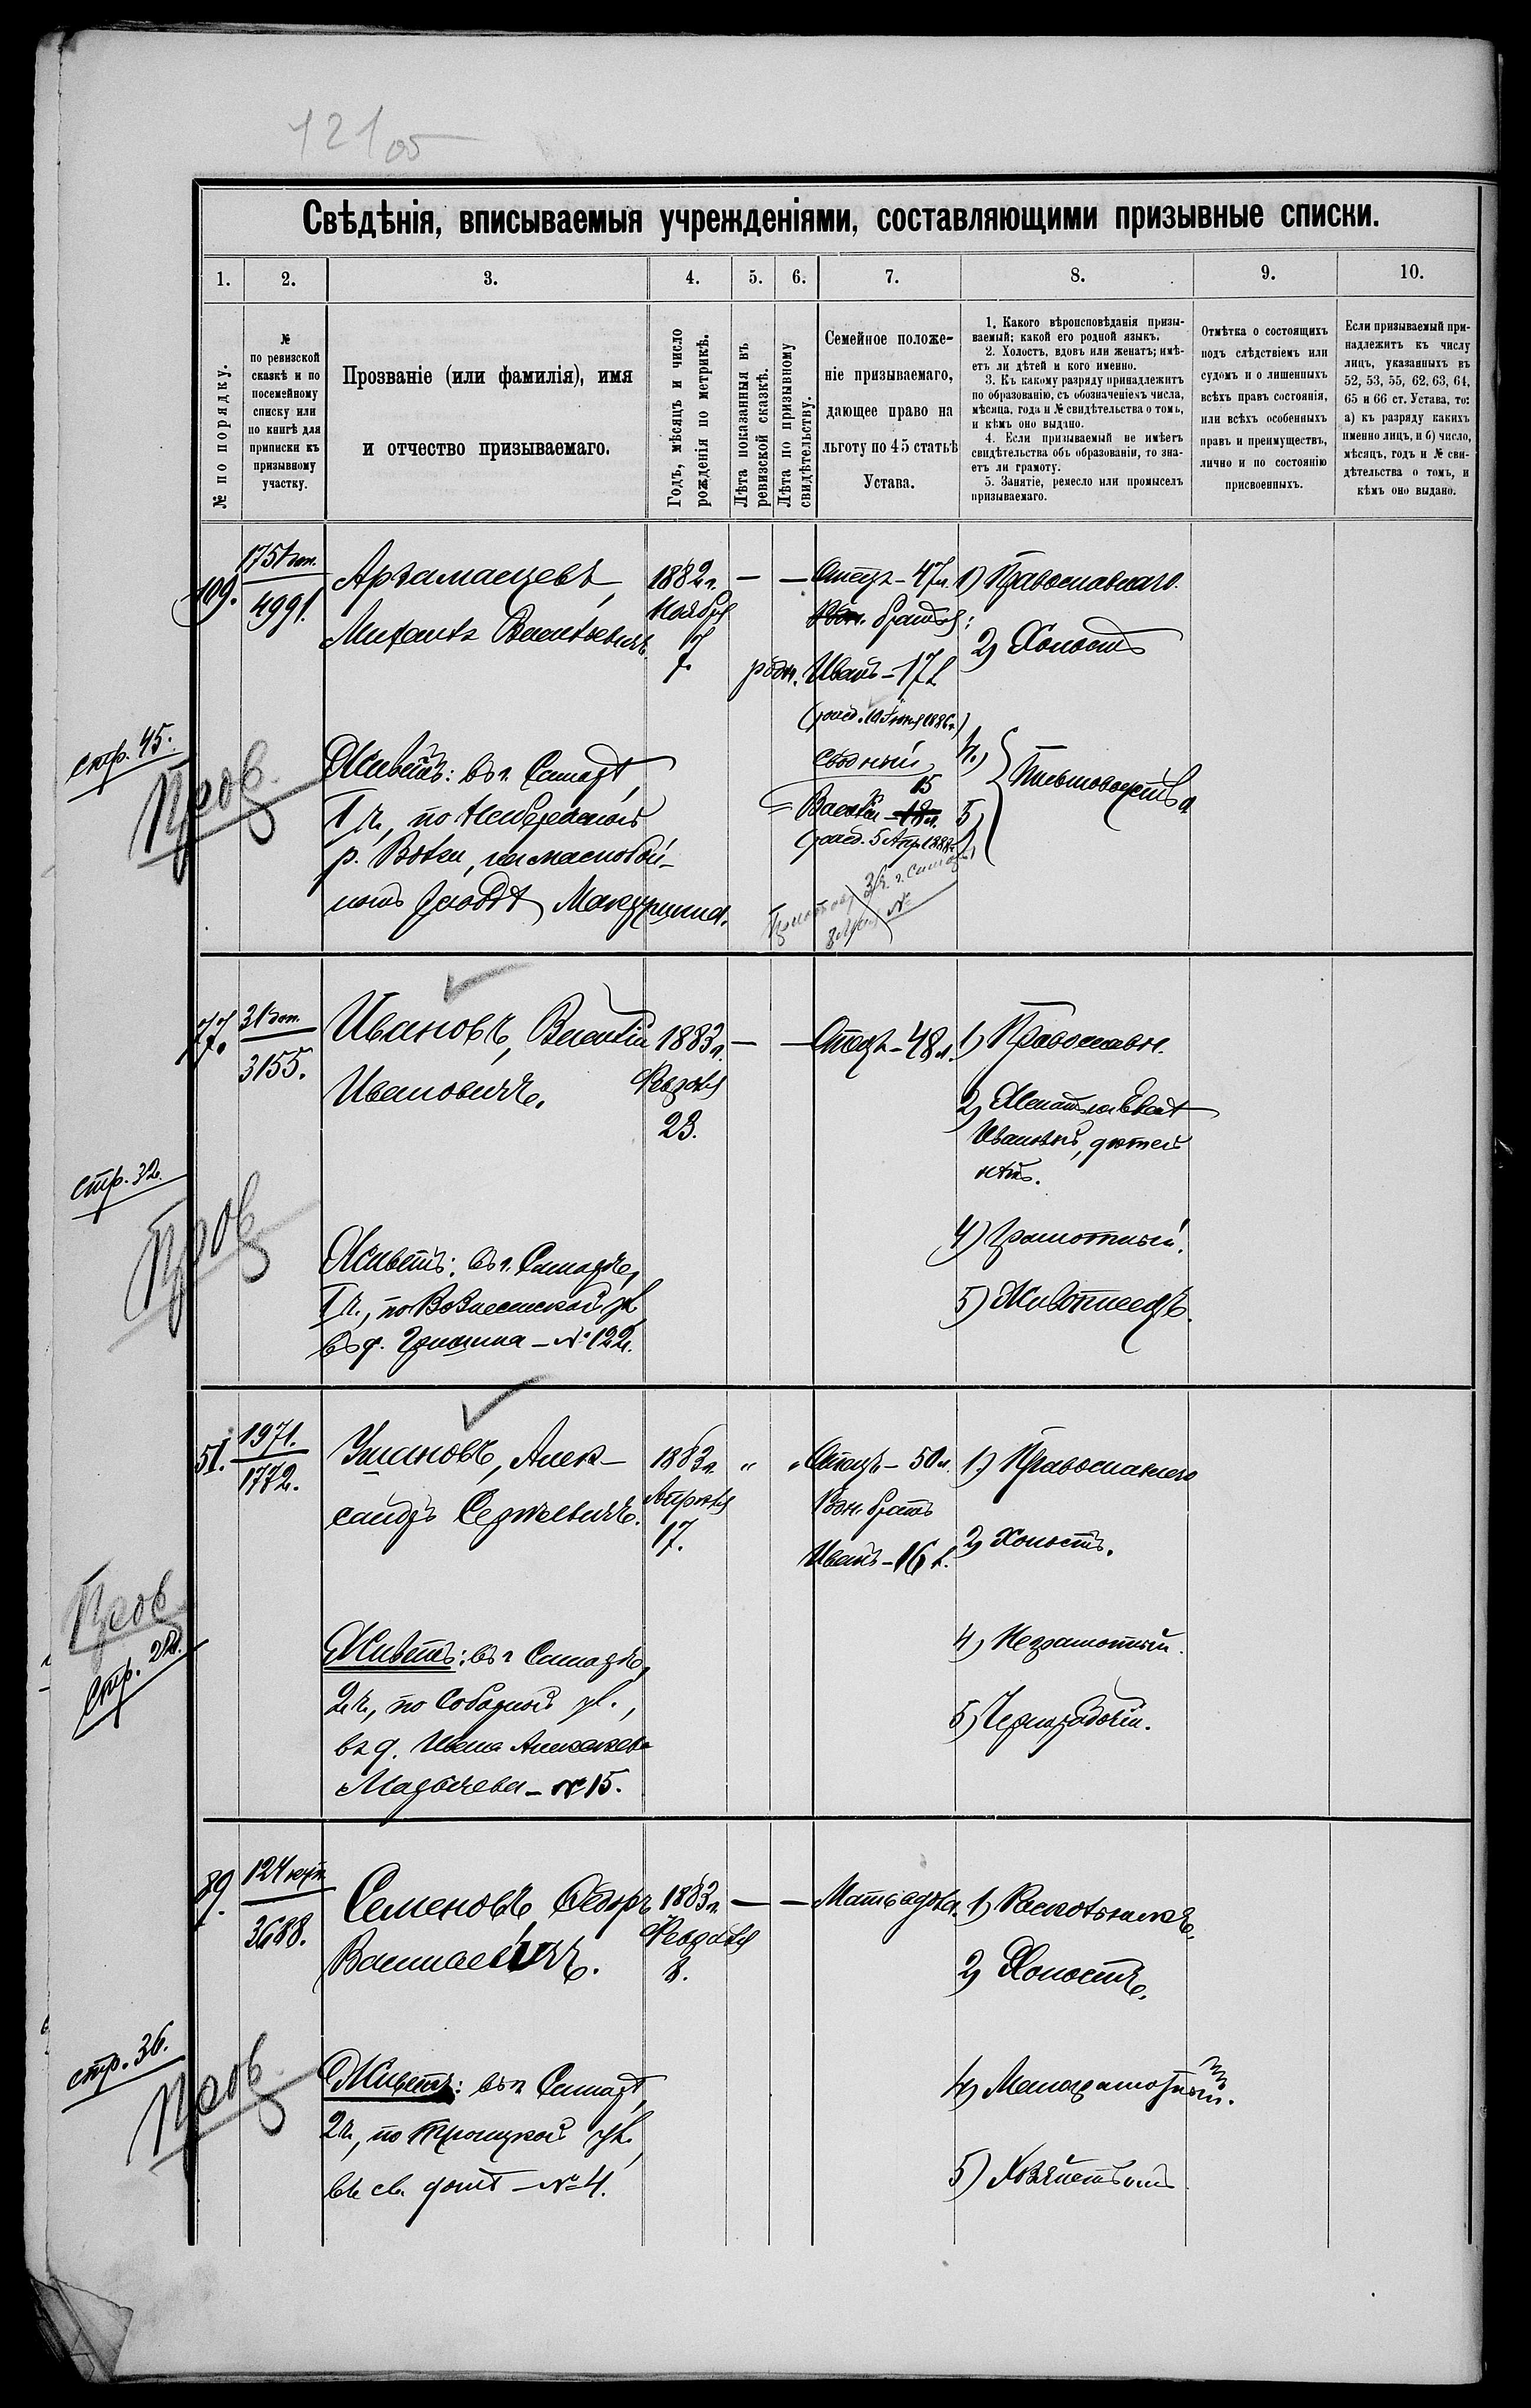 121 05
Свѣдѣнія, вписываемыя учрежденіями, составляющими призывные списки.
1. 2. 3. 4. 5. 6. 7. 8. 9. 10.
№ по порядку.
№
по ревизской
сказкѣ и по
посемейному
списку или
по книгѣ для
приписки къ
призывному
участку.
Прозваніе (или фамилія), имя
и отчество призываемаго.
Годъ, мѣсяцъ и число
рожденія по метрикѣ.
Лѣта показанныя въ
ревизской сказкѣ.
Лѣта по призывному
свидѣтельству.
Семейное положе-
ніе призываемаго,
дающее право на
льготу по 45 статьѣ
Устава.
1. Какого вѣроисповѣданія призы-
ваемый; какой его родной языкъ.
2. Холостъ, вдовъ или женатъ; имѣ-
етъ ли дѣтей и кого именно.
3. Къ какому разряду принадлежитъ
по образованію, съ обозначеніемъ числа,
мѣсяца, года и № свидѣтельства о томъ,
и кѣмъ оно выдано.
4. Если призываемый не имѣетъ
свидѣтельства объ образованіи, то зна-
етъ ли грамоту.
5. Занятіе, ремесло или промыселъ
призываемаго.
Отмѣтка о состоящихъ
подъ слѣдствіемъ или
судомъ и о лишенныхъ
всѣхъ правъ состоянія,
или всѣхъ особенныхъ
правъ и преимуществъ,
лично и по состоянію
присвоенныхъ.
Если призываемый при-
надлежитъ къ числу
лицъ, указанныхъ въ
52, 53, 55, 62, 63, 64,
65 и 66 ст. Устава, то:
а) къ разряду какихъ
именно лицъ, и б) число,
мѣсяцъ, годъ и № сви-
дѣтельства о томъ, и
кѣмъ оно выдано.
109.
175 доп.
4991.
Арзамасцевъ,
Михаилъ Васильевичъ.
1882 г.
Ноября
7.
— —
Отецъ - 47 л.
братья:
родн. Иванъ - 17 л.
(рожд. 10 Іюня 1886 г.)
сводный
Василій 15
(рожд. 5 Апр. 1888 г.)
1) Православнаго.
2) Холостъ
4)
5) Письмоводствъ
стр. 45.
Пров.
Живетъ: въ г. Самарѣ,
1 ч., по Набережной
р. Волги, на маслобой-
номъ заводѣ Макурина.
77.
31 доп.
3155.
Ивановъ, Василій
Ивановичъ.
1883 г.
Февраля
23.
— —
Отецъ - 48 л.
1) Православн.
2) Женатъ на
Ивановнѣ, дѣтей
нѣтъ.
4) Грамотный.
5) Живописецъ.
стр. 32.
Пров
Живетъ: въ г. Самарѣ,
1 ч., по Вознесенской ул.
въ д. Гришина - № 122.
51.
1971.
1772.
Ушановъ, Алек-
сандръ Сергѣевичъ.
1883 г.
Апрѣля
17.
" "
Отецъ - 50 л.
Родн. братъ
Иванъ - 16 л.
1) Православнаго
2) Холостъ.
4) Неграмотный.
5) Чернорабочій.
Пров
стр. 28.
Живетъ: въ г. Самарѣ,
2 ч., по Соборной ул.,
въ д. Ивана Алексѣева
- № 15.
89.
124
3688.
Семеновъ, Ѳедоръ
Васильевичъ.
1883 г.
Февраля
8.
— —
Мать вдова.
1) Раскольникъ.
2) Холостъ.
4) Малограмотный.
5) Хозяйствомъ
стр. 36.
Пров
Живетъ: въ г. Самарѣ,
2 ч., по Троицкой ул.,
въ св. домѣ - № 4.